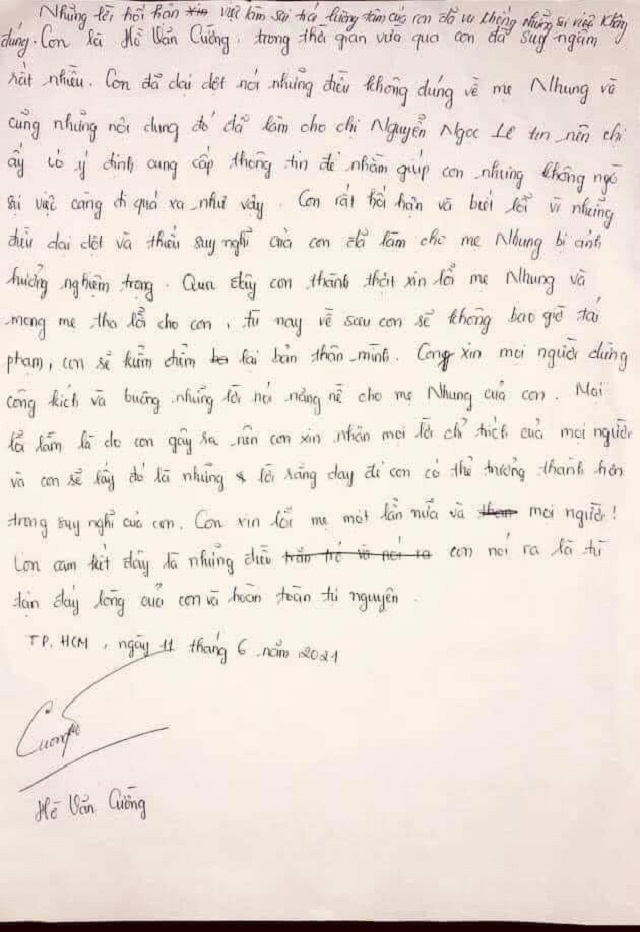 Những lời hối hận xin việc làm sai trái lương tâm của con đã vu khống những sự việc không
đúng. Con là Hồ Văn Cường, trong thời gian vừa qua con đã suy ngẫm
rất nhiều. Con đã dại dột nói những điều không đúng về mẹ Nhung và
cũng những nội dung đó đã làm cho chị Nguyễn Ngọc Lê tin nên chị
ấy có ý định cung cấp thông tin để nhằm giúp con nhưng không ngờ
sự việc càng đi quá xa như vậy. Con rất hối hận và biết lỗi vì những
điều dại dột và thiếu suy nghĩ của con đã làm cho mẹ Nhung bị ảnh
hưởng nghiệm trọng. Qua đây con thành thật xin lỗi mẹ Nhung và
mong mẹ tha lỗi cho con, từ nay về sau con sẽ không bao giờ tái
phạm, con sẽ kiểm điểm lại bản thân mình. Cong xin mọi người dừng
công kích và buông những lời nói nặng nề cho mẹ Nhung của con. Mọi
lỗi lầm là do con gây ra nên con xin nhận mọi lời chỉ trích của mọi người
và con sẽ lấy đó là những lời răng dạy để con có thể trưởng thành hơn
trong suy nghĩ của con. Con xin lỗi mẹ một lần nữa và mọi người!
Con cam kết đây là những điều trăn trở và nói ra con nói ra là từ
tận đáy lòng của con và hoàn toàn tự nguyện.
TP. HCM, ngày 11 tháng 6 năm 2021
Cường
Hồ Văn Cường